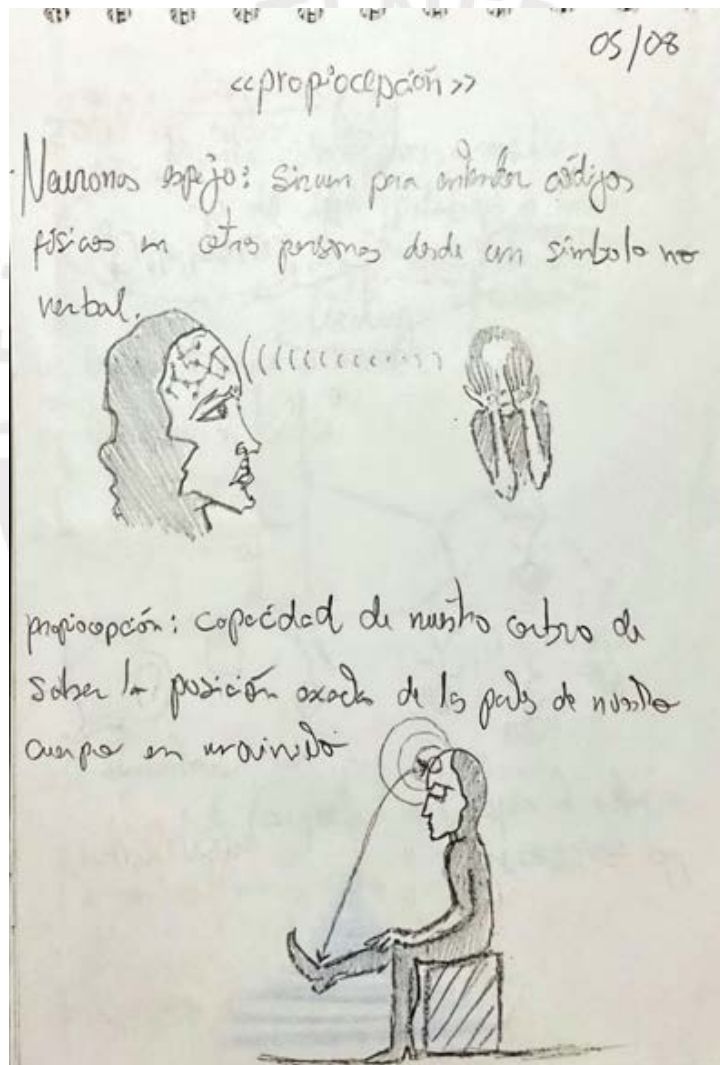 05/08
<<propiocepción>>
Neuronas espejo: Sirven para entender códigos
físicos en otras personas desde un símbolo no
verbal.
propiocepción: capacidad de nuestro cerebro de
saber la posición exacta de las partes de nuestro
cuerpo en